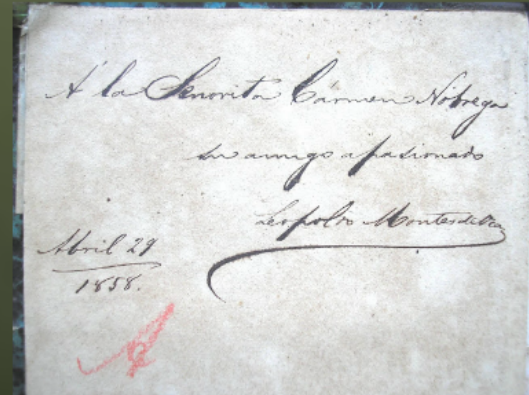 A la Señorita Cármen Nóbrega
su amigo apasionado
Leopoldo Montesdeoca
Abril 29
1858.